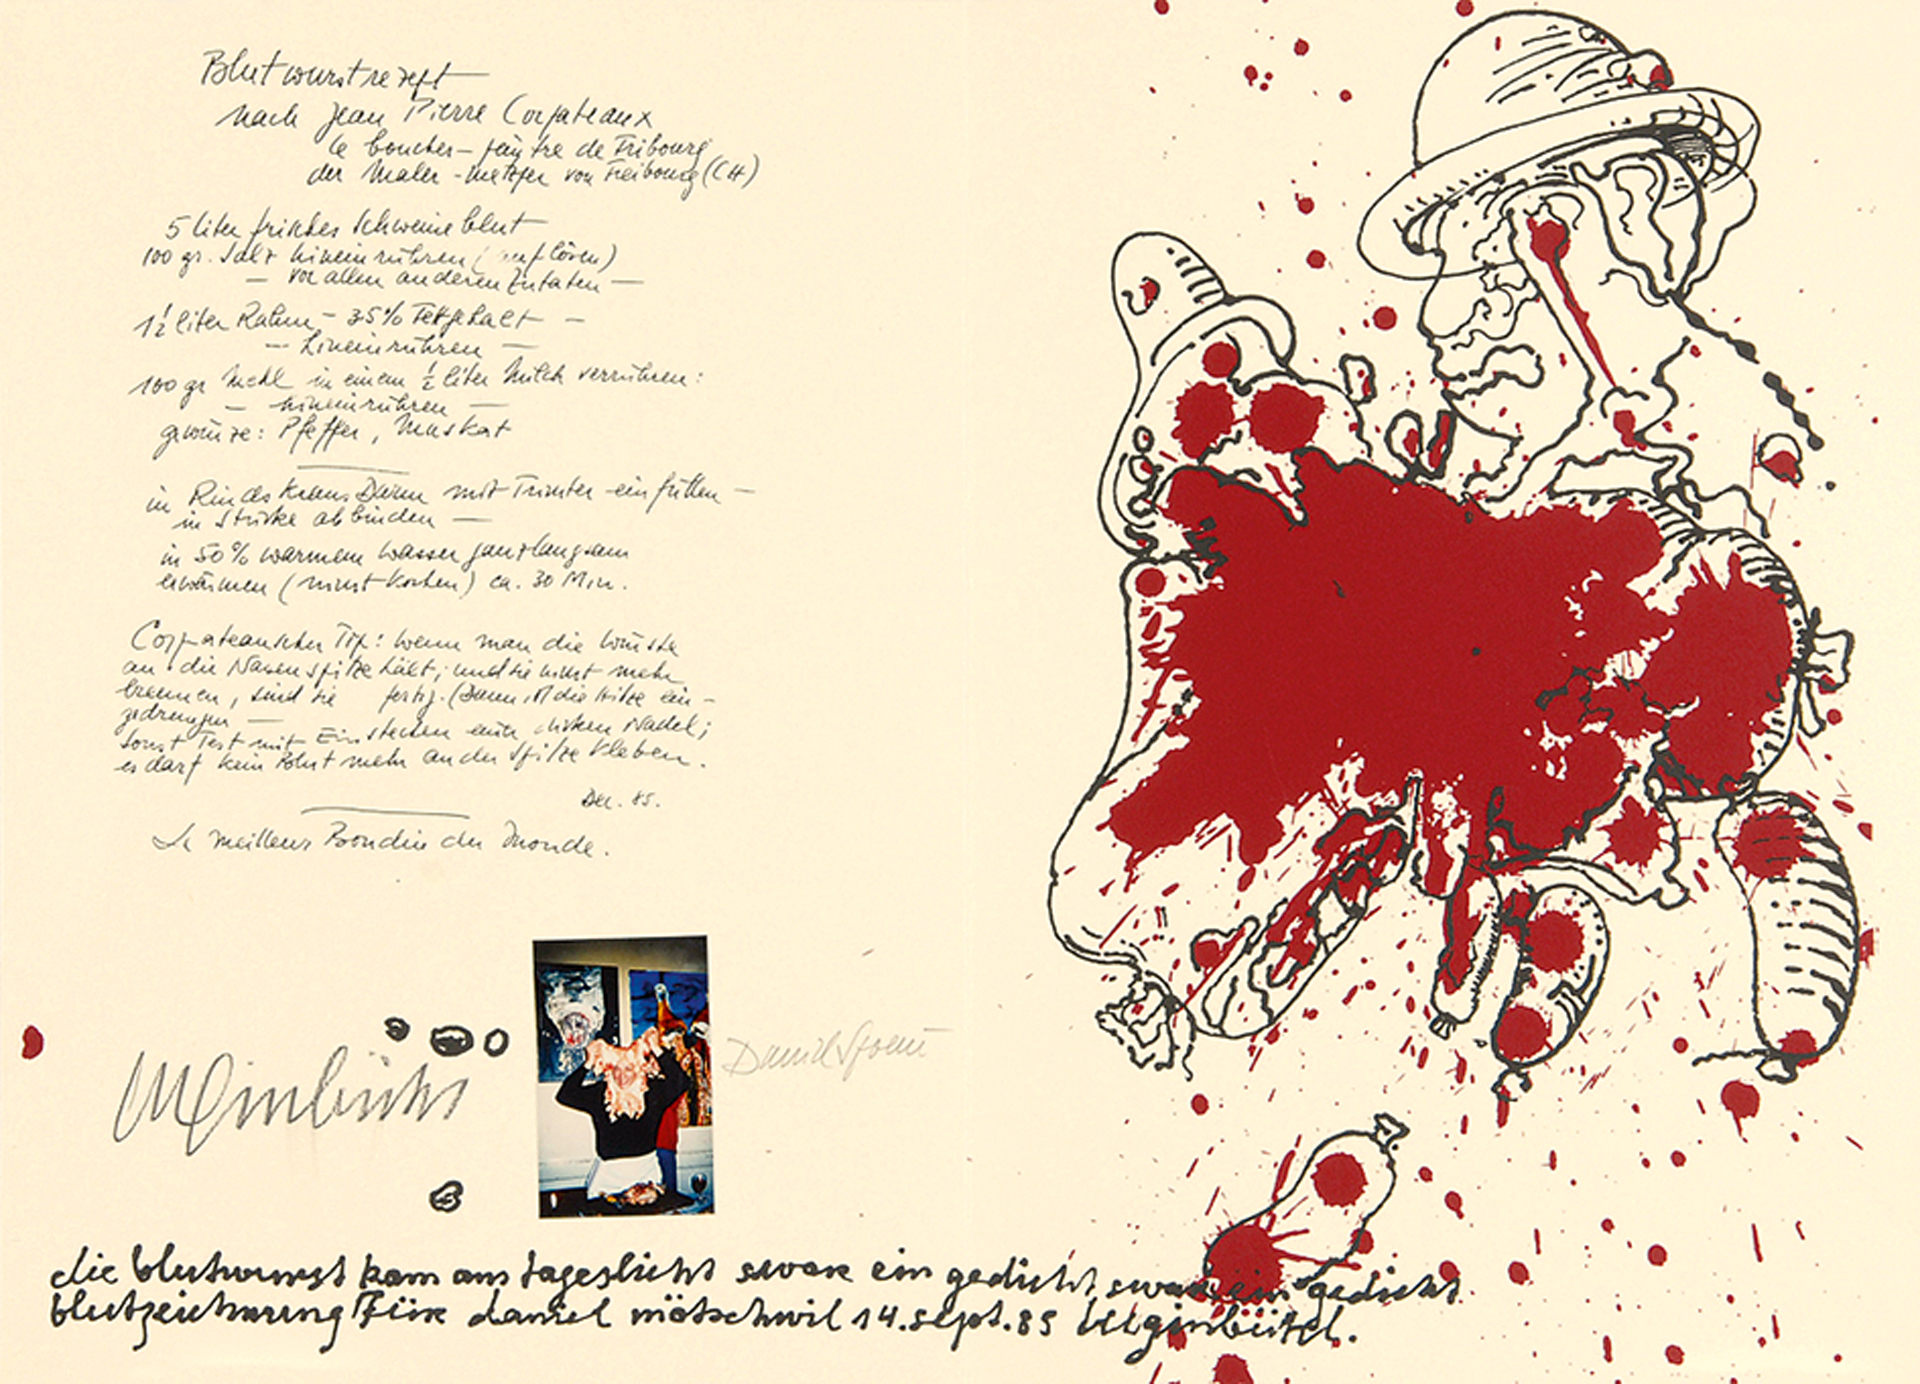 Blutwurstrezept
nach Jean Pierre Corpateaux
le boucher-peintre de Fribourg
der Maler-Metzger von Freibourg (CH)
5 liter frisches Schweineblut
100 gr. Salz hineinrühren (auflösen)
— vor allen anderen Zutaten —
1½ liter Rahm - 35% Fettgehalt —
— hineinrühren —
100 gr Mehl in einem ½ liter Milch verrühren:
— hineinrühren —
gewürze: Pfeffer, Muskat
in Rindskranzdärme mit Trichter einfüllen —
in Stücke abbinden —
in 50% warmem Wasser ganz langsam
erwärmen (nicht kochen) ca. 30 Min.
Corpateauscher Tip: wenn man die würste
an die Nasenspitze hält, und sie nicht mehr
brennen, sind sie fertig. (Dann ist die Hitze ein-
gedrungen —
sonst Test mit Einstechen einer dicken Nadel;
es darf kein Blut mehr an der Spitze kleben.
Dez. 85.
Le meilleur Boudin du Monde.
Daniel Spoerri
die blutwurst kam ans tageslicht swar ein gedicht swar ein gedicht
blutzeichnung für daniel mötschwil 14.sept.85